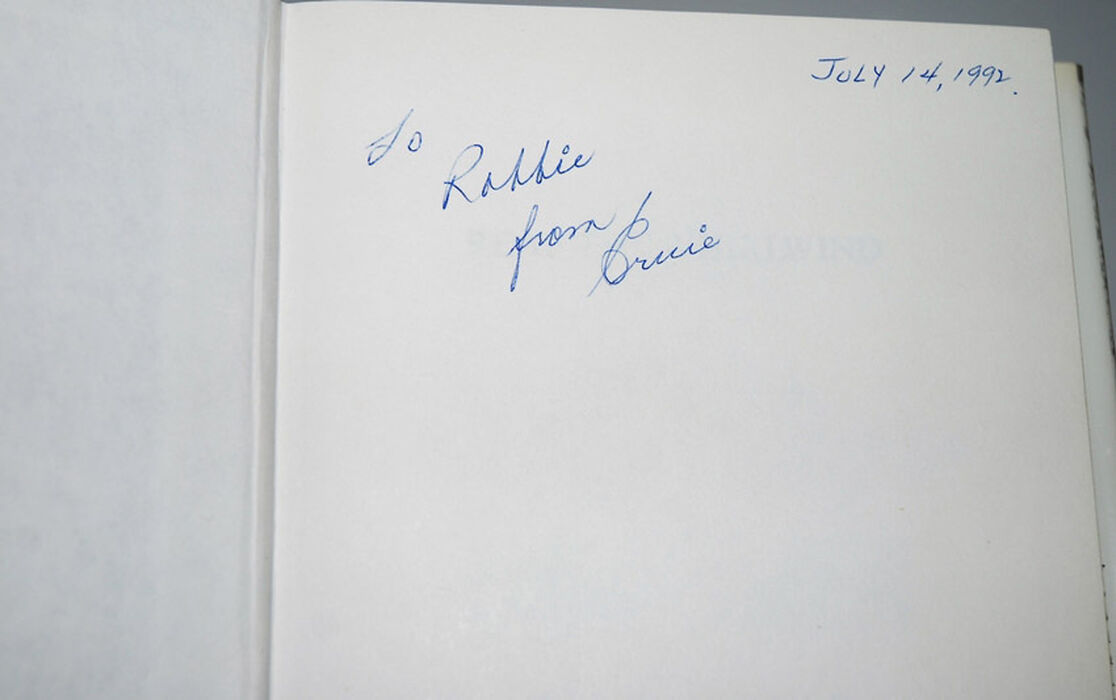 JULY 14, 1992.
To
Robbie
from
Ernie